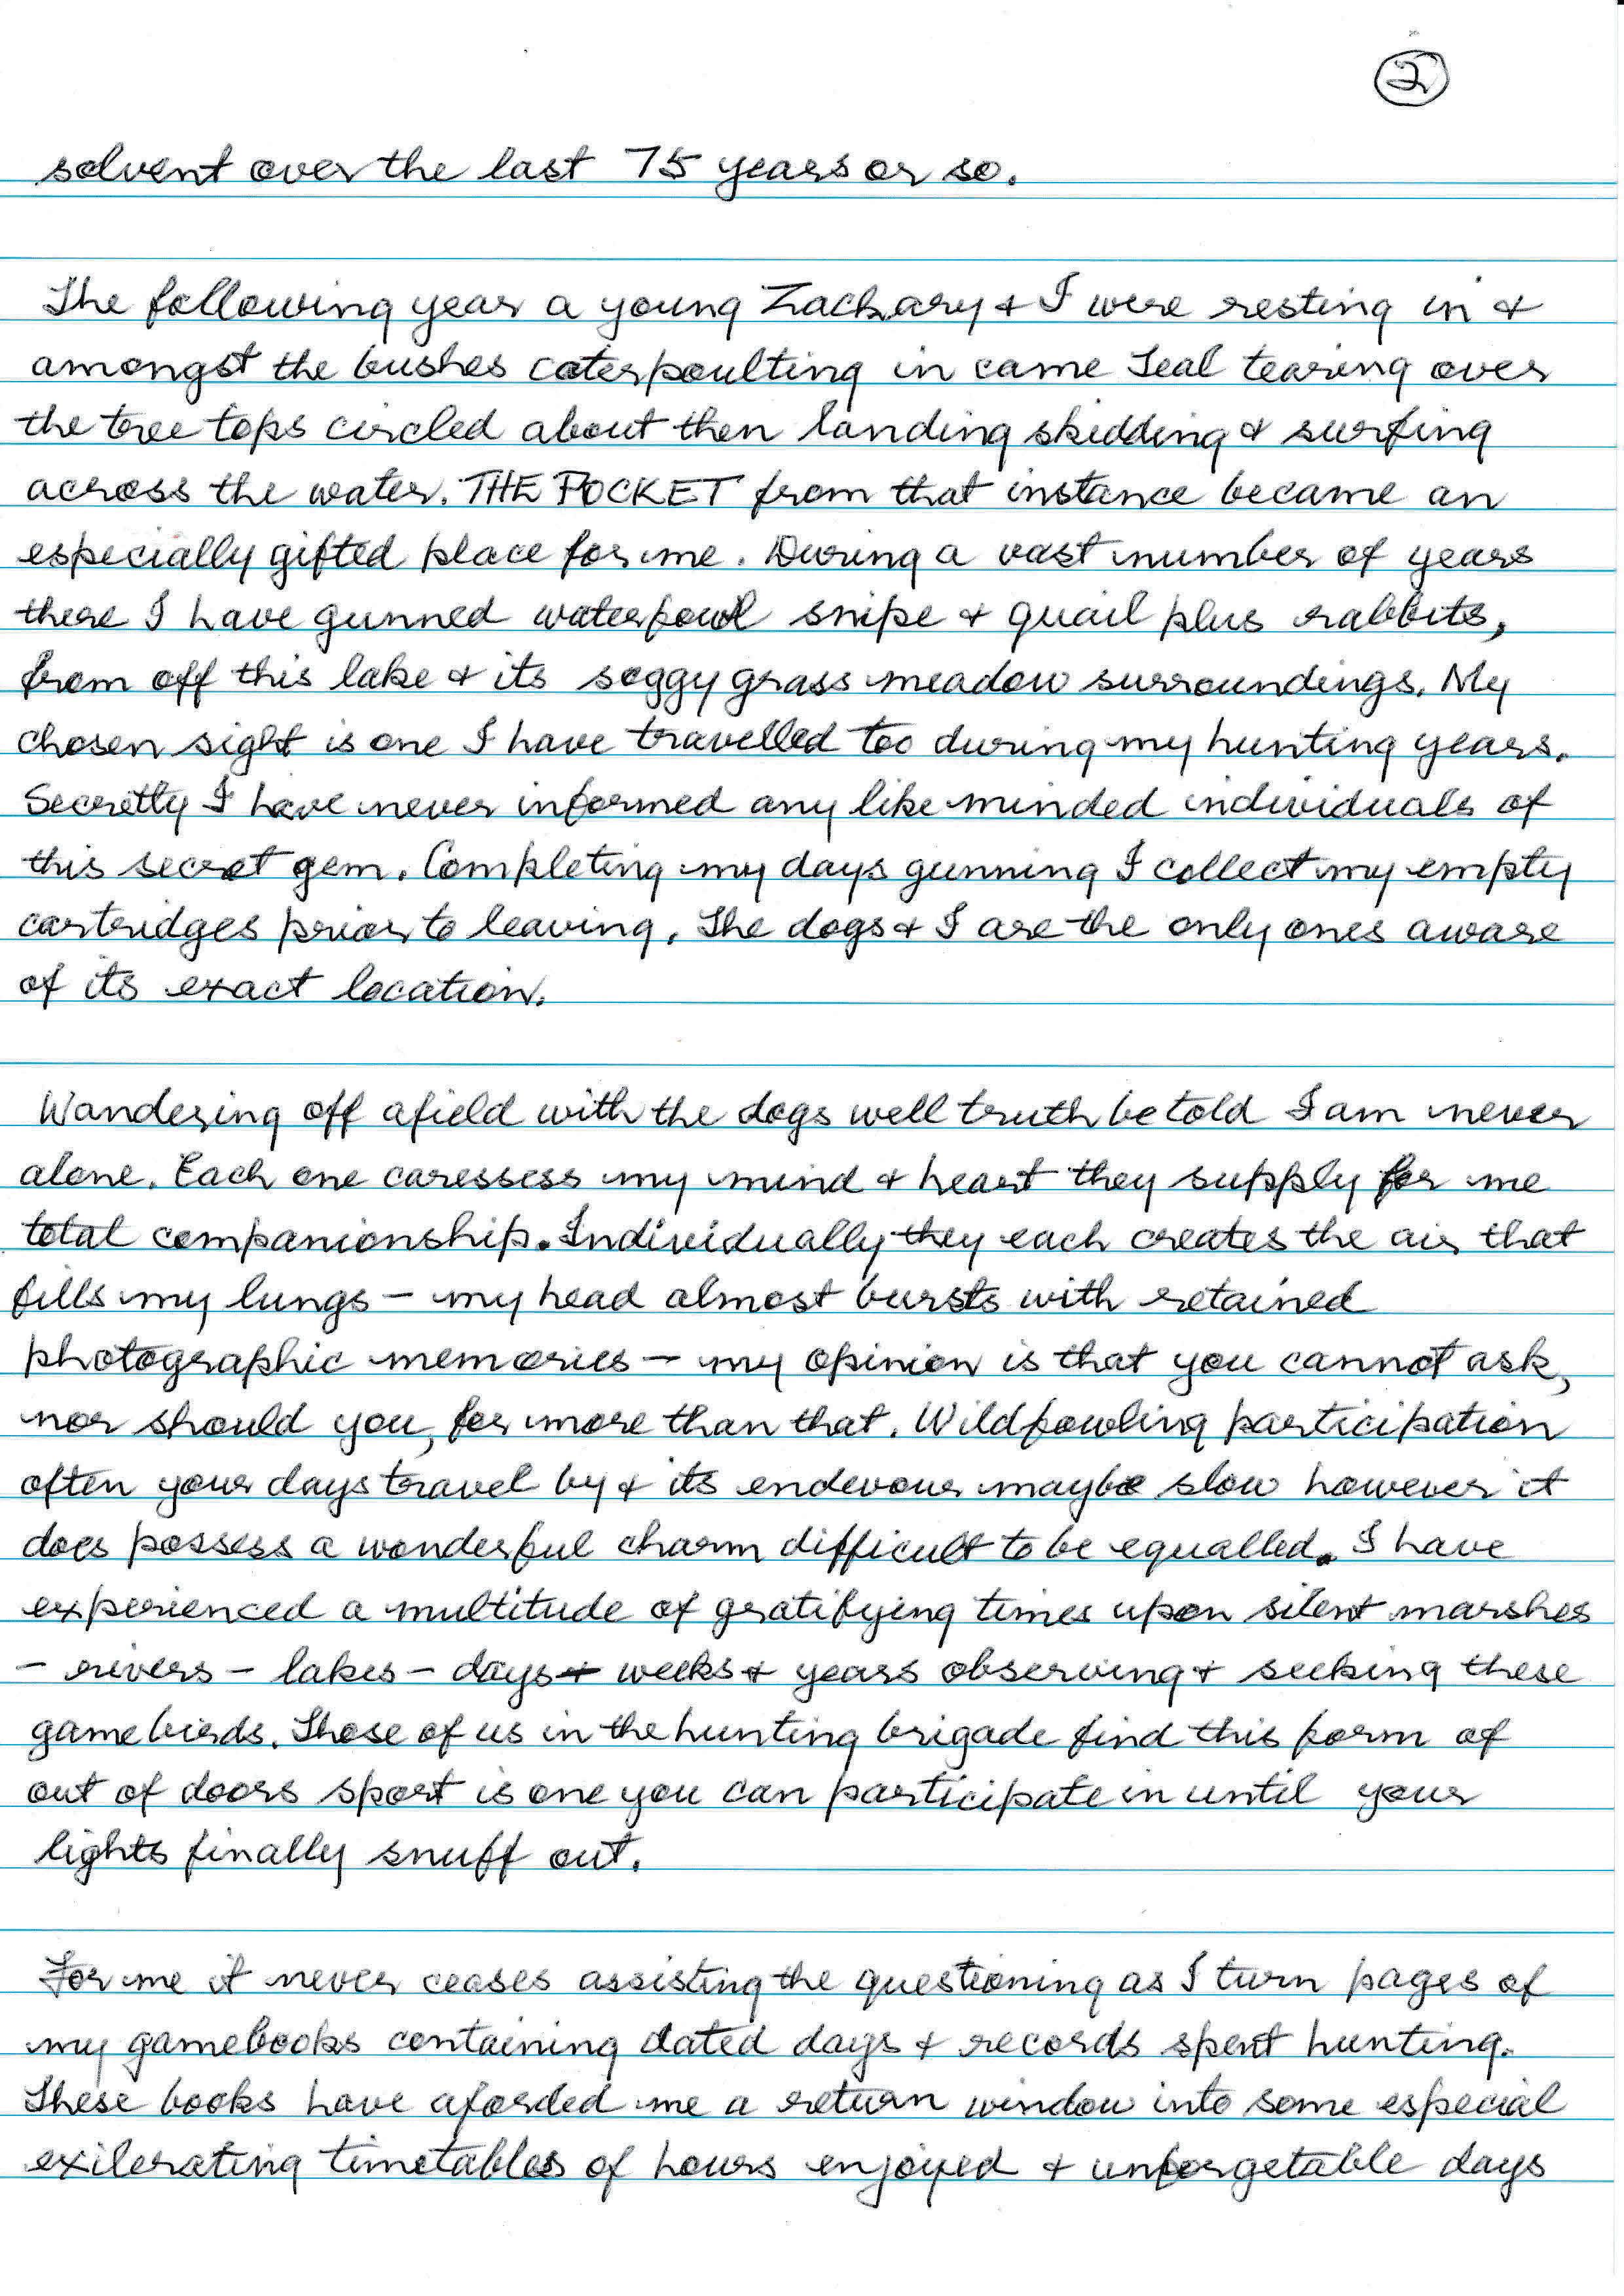 2
solvent over the last 75 years or so.
The following year a young Zachary & I were resting in &
amongst the bushes caterpoulting in came Teal tearing over
the tree tops circled about then landing skidding & surfing
across the water. THE POCKET from that instance became an
especially gifted place for me. During a vast number of years
there I have gunned waterfowl snipe & quail plus rabbits,
from off this lake & its soggy grass meadow surroundings. My
chosen sight is one I have travelled too during my hunting years.
Secretly I have never informed any like minded individuals of
this secret gem. Completing my days gunning I collect my empty
cartridges prior to leaving. The dogs & I are the only ones aware
of its exact location.
Wandering off afield with the dogs well truth be told I am never
alone. Each one caressess my mind & heart they supply for me
total companionship. Individually they each creates the air that
fills my lungs - my head almost bursts with retained
photographic memories - my opinion is that you cannot ask,
nor should you, for more than that. Wildfowling participation
often your days travel by & its endevour maybe slow however it
does possess a wonderful charm difficult to be equalled. I have
experienced a multitude of gratifying times upon silent marshes
- rivers - lakes - days & weeks & years observing & seeking these
game birds. Those of us in the hunting brigade find this form of
out of doors sport is one you can participate in until your
lights finally snuff out.
For me it never ceases assisting the questioning as I turn pages of
my gamebooks containing dated days & records spent hunting.
These books have aforded me a return window into some especial
exilerating timetables of hours enjoyed & unforgetable days